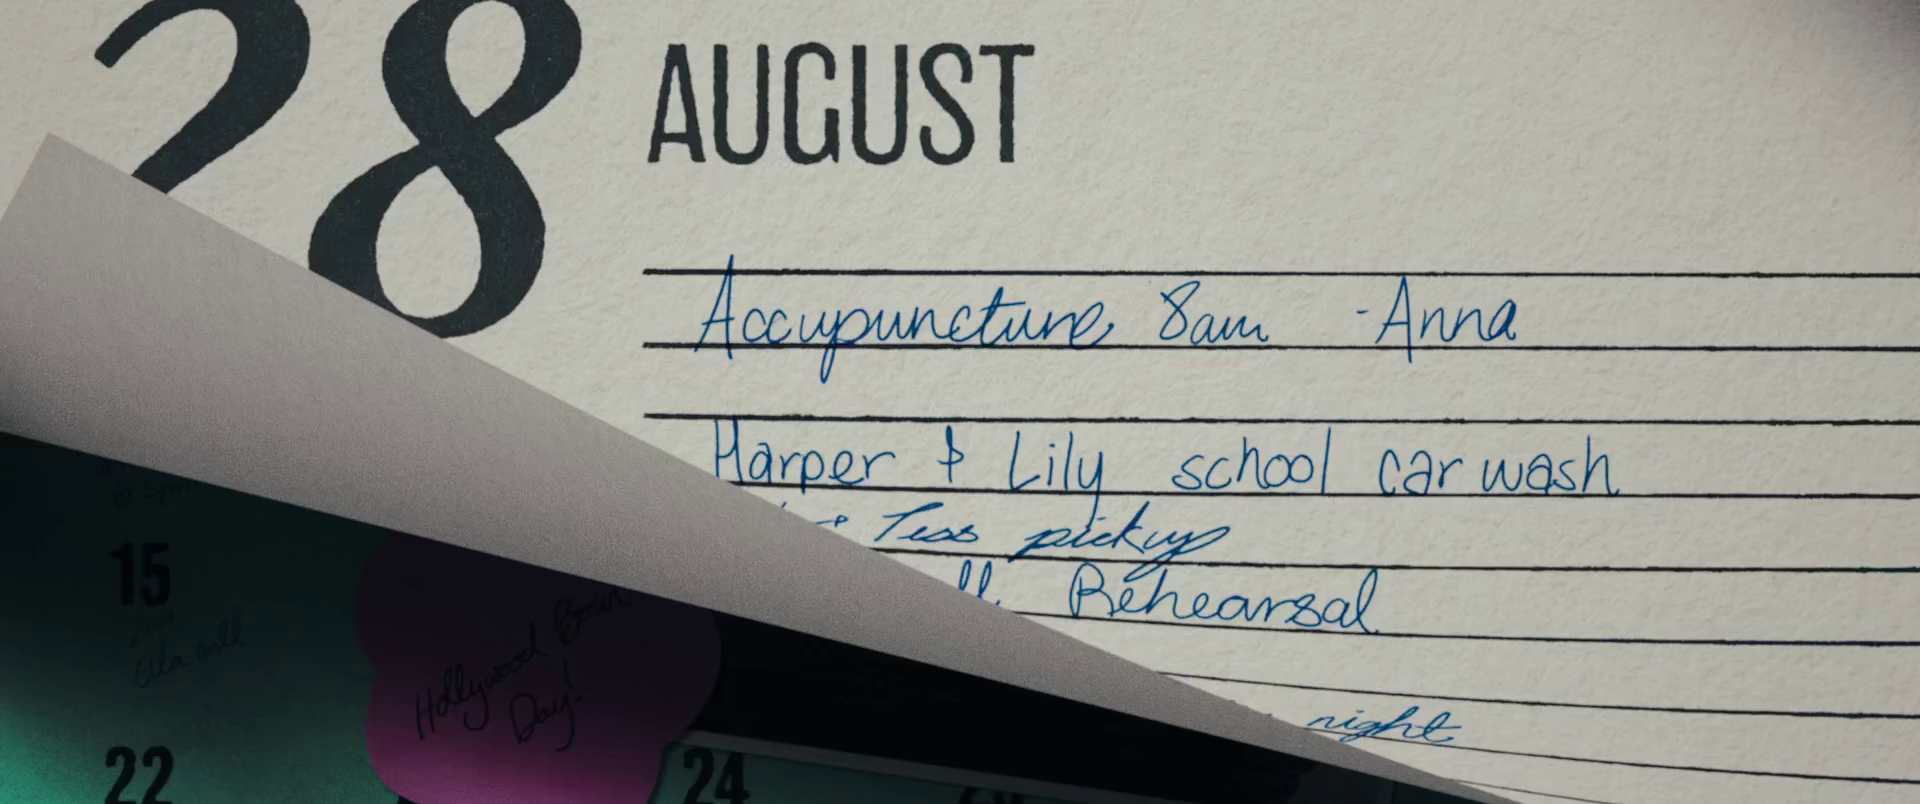 28 AUGUST
Accupuncture 8am - Anna
Harper & Lily school car wash
Tess pickup
Rehearsal
night
15
Hollywood Bowl
Day!
22
24